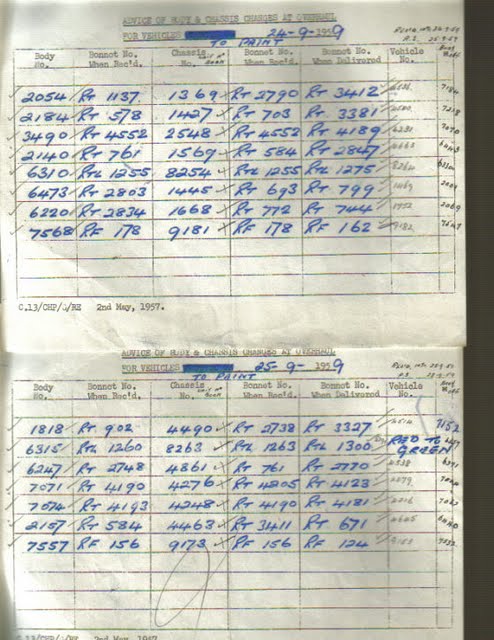 ADVICE OF BODY & CHASSIS CHANGES AT OVERHAUL
FOR VEHICLES TO PAINT 24-9-1959
Body No. Bonnet No. When Rec'd. Chassis No. Bonnet No. Bonnet No. When Delivered Vehicle No.
2054 RT 1137. 1369 RT 2790 RT 3412
2184 RT 578 1427 RT 703 RT 3381
3490 RT 4552 2548 RT 4552 RT 4189
2140 RT 761 1569 RT 584 RT 2847
6310 RTL 1255 8254 RTL 1255 RTL 1275 8264
6473 RT 2803 1445 RT 693 RT 799
6220 RT 2834 1668 RT 772 RT 744
7568 RF 178 9181 RF 178 RF 162 9182
C.13/CHP/J/RE 2nd May, 1957.
ADVICE OF BODY & CHASSIS CHANGES AT OVERHAUL
FOR VEHICLES TO PAINT 25-9-1959
Body No. Bonnet No. When Rec'd. Chassis No. Bonnet No. Bonnet No. When Delivered Vehicle No.
1818 RT 902 4490 RT 2738 RT 3327 7152
6315 RTL 1260 8263 RTL 1263 RTL 1300 RED TO GREEN
6247 RT 2748 4861 RT 761 RT 2770 4538
7071 RT 4190 4276 RT 4205 RT 4123
7074 RT 4193 4248 RT 4190 RT 4181
2157 RT 584 4463 RT 3411 RT 671
7557 RF 156 9173 RF 156 RF 124
C.13/CHP/J/RE 2nd May, 1957